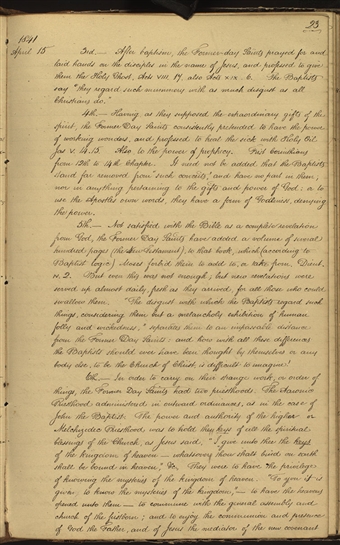 23
1841
April 15 3rd.— After baptism, the Former-day Saints prayed for and
laid hands on the disciples in the name of Jesus, and professed to give
them the Holy Ghost, Acts VIII. 17, also Acts XIX. 6. The Baptists
say "they regard such mummeries with as much disgust as all
Christians do."
4th.— Having as they supposed the extraordinary gifts of the
spirit, the Former Day Saints constantly pretended to have the power
of working wonders, and professed to heal the sick with Holy Oil.
Jas V. 14. 15. Also to the power of prophecy. First Corinthians
from 12th to 14th Chapter. It need not be added that the Baptists
stand far removed from such conceits, and have no part in them;
nor in anything pertaining to the gifts and power of God; a to
use the Apostles own words, they have a form of Godliness, denying
the power.
5th.— Not satisfied with the Bible as a complete revelation
from God, the Former Day Saints have added a volume of several
hundred pages (the New Testament), to that book, which (according to
Baptist logic) Moses forbid them to add to, or take from. Deut.
IV. 2. But even this was not enough, but new revelations were
served up almost daily, fresh as they arrived, for all those who could
swallow them. The disgust with which the Baptists regard such
things, considering them but a melancholy exhibition of human
folly and wickedness," separates them to an impassable distance
from the Former Day Saints; and how with all these differences
the Baptists should ever have been thought by themselves or any
body else, to be the Church of Christ, is difficult to imagine!
6th.— In order to carry on their strange work, or order of
things, the Former Day Saints had two priesthoods. The Aaronic
Priesthood administered in outward ordinances, as in the case of
John the Baptist. The power and authority of the higher or
Melchizedec Priesthood was to hold the keys of all the spiritual
blessings of the Church, as Jesus said, "I give unto thee the keys
of the kingdom of heaven — whatsoever thou shalt bind on earth
shall be bound in heaven," &c, They were to have the privilege
of knowing the mysteries of the kingdom of heaven. "To you it is
given, to know the mysteries of the kingdom,— to have the heavens
opened unto them — to commune with the general assembly and
church of the firstborn; and to enjoy the communion and presence
of God the Father, and of Jesus the mediator of the new covenant